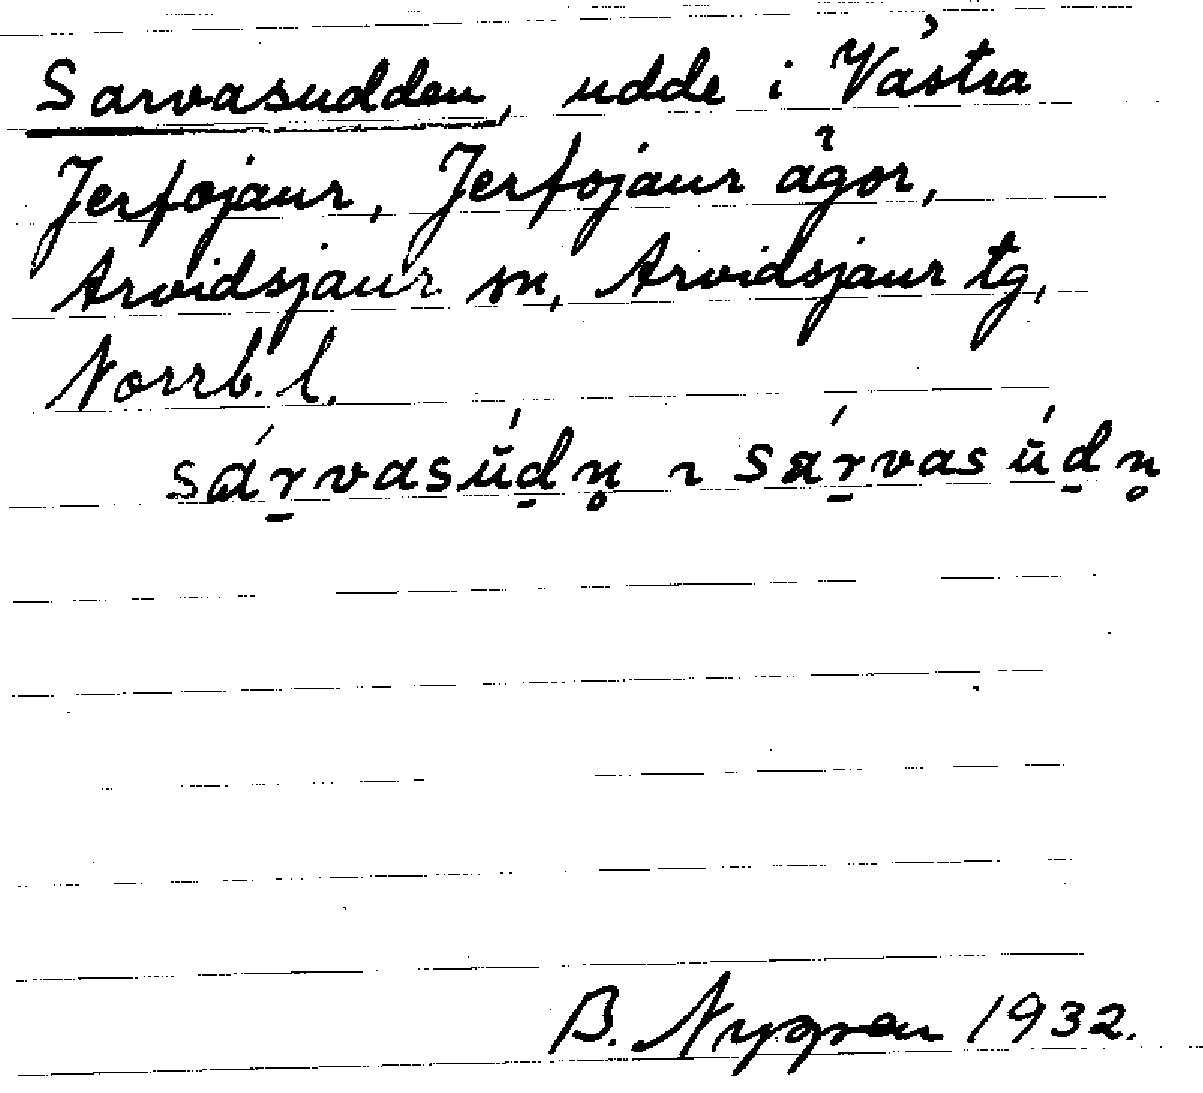 Sarvasudden, udde i Västra
Jerfojaur, Jerfojaur ägor,
Arvidsjaur sn, Arvidsjaur tg,
Norrb. l.
B. Nygren 1932.